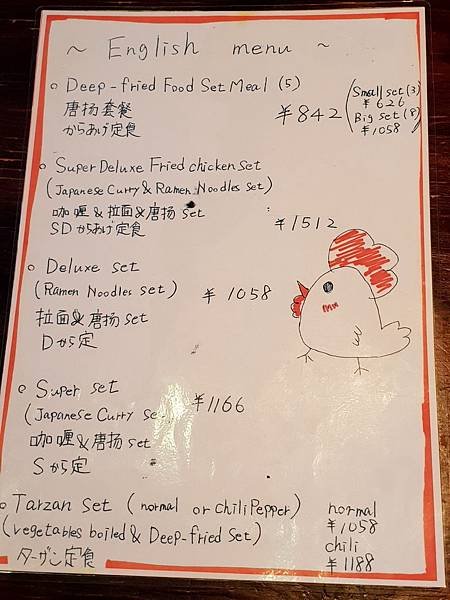 ~ English menu ~
○ Deep-fried Food Set Meal (5)
唐扬套餐
からあげ定食
¥842
(Small set (3)
¥626
Big set (8)
¥1058)
○ Super Deluxe Fried chicken set
(Japanese Curry & Ramen Noodles set)
咖喱&拉面&唐扬 set
SDからあげ定食
¥1512
○ Deluxe set
(Ramen Noodles set) ¥1058
拉面&唐扬 set
Dから定
○ Super set
(Japanese Curry se ¥1166
咖喱&唐扬 set
Sから定
○ Tarzan Set (normal or chiliPepper)
(vegetables boiled & Deep-fried Set)
ターザン定食
normal
¥1058
chili
¥1188